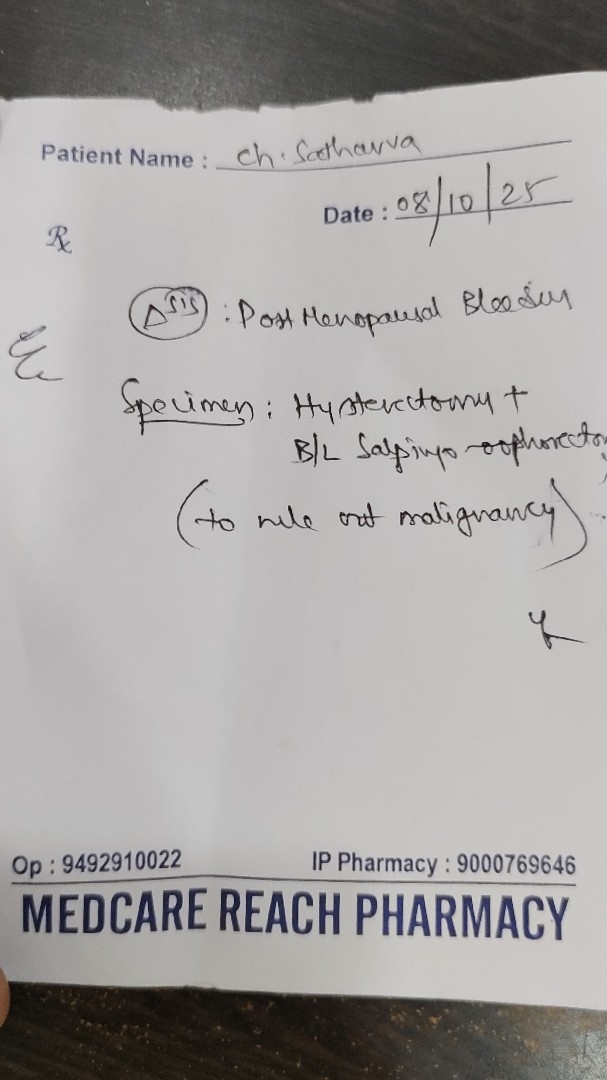 Patient Name : ch. Satharva
Date : 08/10/25
Rx
Δsis : Post Menopausal Bleeding
Specimen : Hysterectomy +
B/L Salpingo-oophorectom
(to rule out malignancy)
Op : 9492910022 IP Pharmacy : 9000769646
MEDCARE REACH PHARMACY